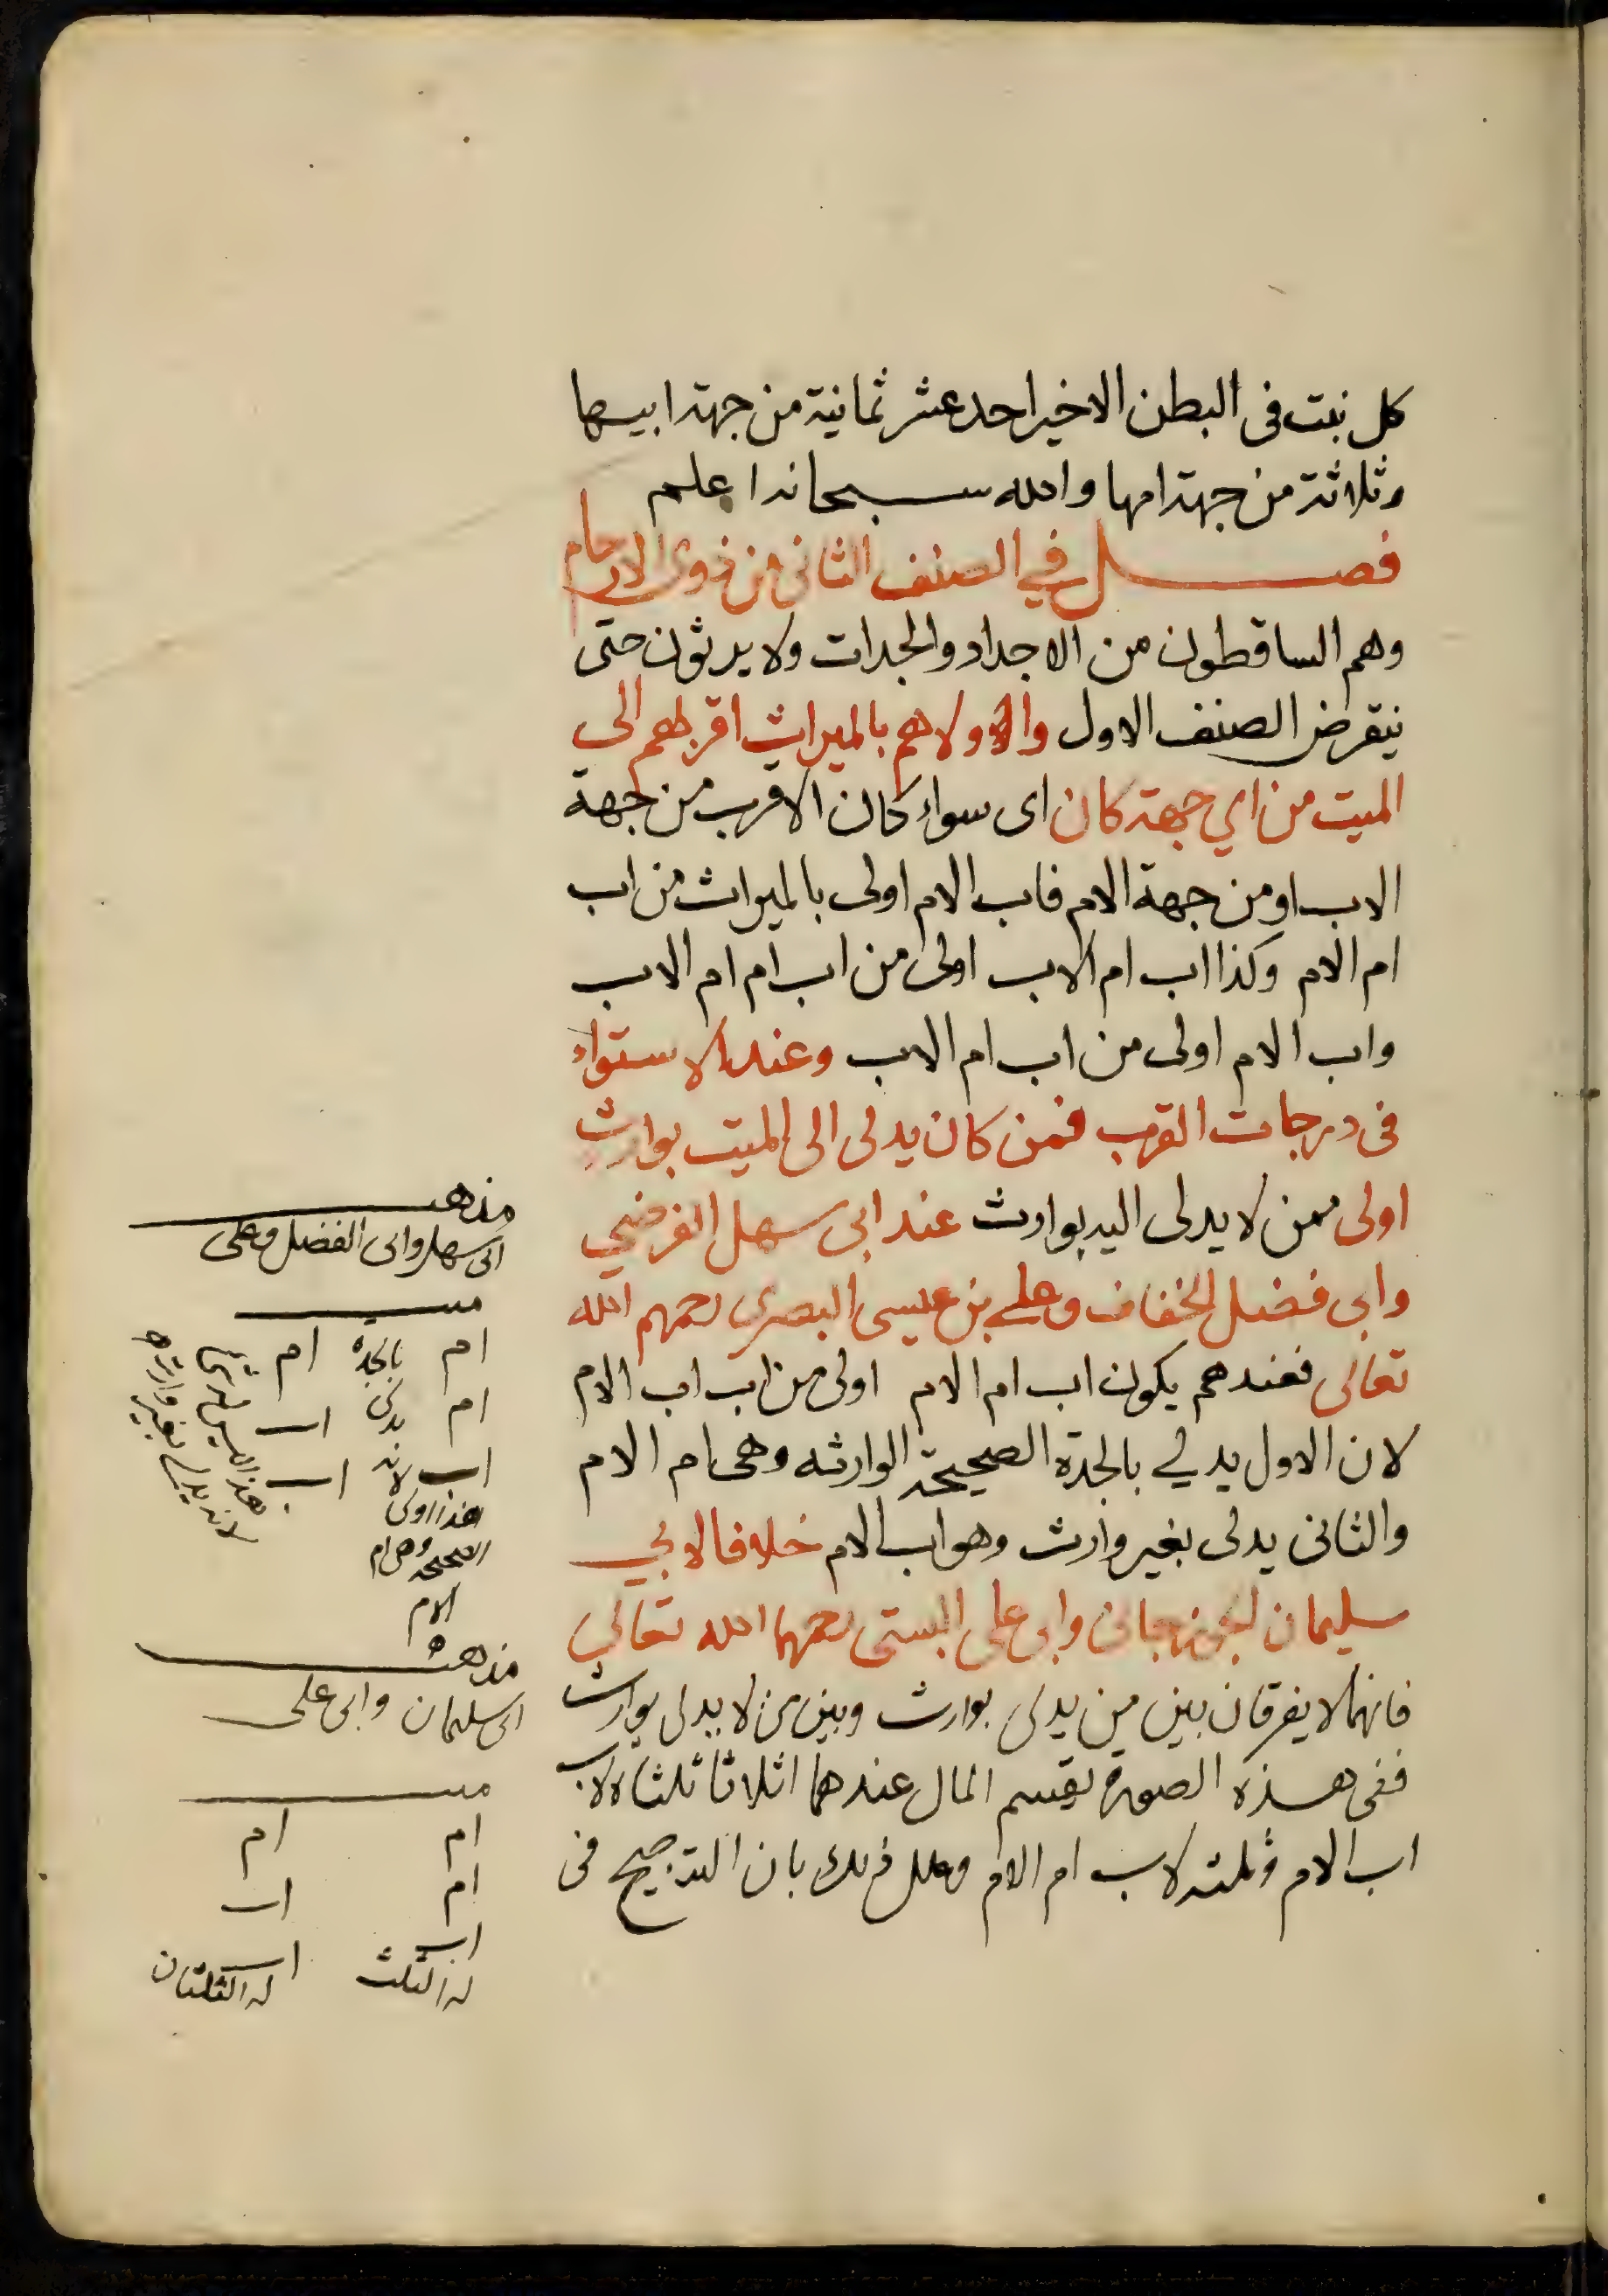 كل بنت فى البطن الاخير احد عشر ثمانية من جهة ابيها
وثلاثة من جهة امها والله سبحانه اعلم
فصل في الصنف الثانى من ذوى الارحام
وهم الساقطون من الاجداد والجدات ولا يرثون حتى
ينقرض الصنف الاول واولاهم بالميراث اقربهم الى
الميت من اي جهة كان اى سواء كان الاقرب من جهة
الاب او من جهة الام فاب الام اولى بالميراث من اب
ام الام وكذا اب ام الاب اولى من اب ام ام الاب
واب الام اولى من اب ام الاب وعند الاستواء
فى درجات القرب فمن كان يدلى الى الميت بوارث
اولى ممن لا يدلى اليه بوارث عند ابى سهل الفرضي
وابى فضل الخفاف وعلي بن عيسى البصرى رحمهم الله
تعالى فعندهم يكون اب ام الام اولى من اب اب الام
لان الاول يدلي بالجدة الصحيحة الوارثه وهى ام الام
والثانى يدلى بغير وارث وهو اب الام خلافا لابي
سليمان الجوزجانى وابى على البستى رحمهما الله تعالى
فانهما لا يفرقان بين من يدلى بوارث وبين من لا يدلى بوارث
ففى هذه الصورة يقسم المال عندهما اثلاثا ثلثاه لاب
اب الام وثلثه لاب ام الام وعلل ذلك بان الترجيح فى
مذهب
ابى سهل وابى الفضل وعلى
ميت
ام ام
ام اب
اب اب
هذا اولى
لانه
يدلى
بالجدة
الصحيحة وهى ام
الام
هذا ليس
لانه يدلى بغير وارث
مذهب
ابى سليمان وابى على
ميت
ام ام
ام اب
اب اب
له الثلث له الثلثان